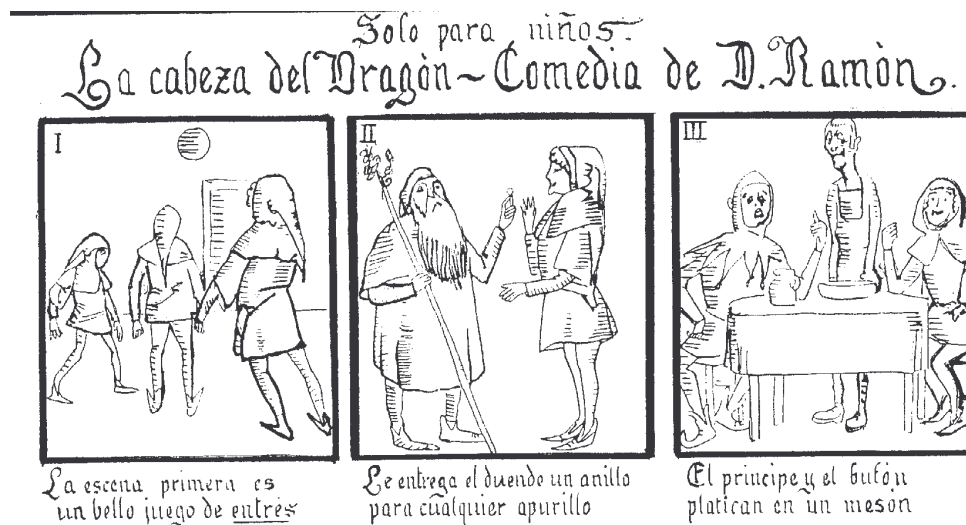 Solo para niños.
La cabeza del Dragón~Comedia de D. Ramón.
I
II
III
La escena primera es
un bello juego de entrés
Le entrega el duende un anillo
para cualquier apurillo
El principe y el bufón
platican en un mesón